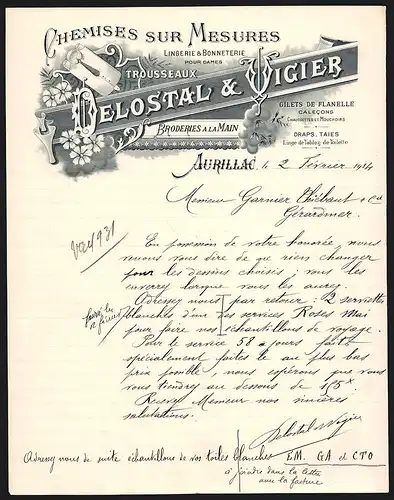 CHEMISES SUR MESURES
LINGERIE & BONNETERIE
POUR DAMES
TROUSSEAUX
DELOSTAL & VIGIER
BRODERIES A LA MAIN
GILETS DE FLANELLE
CALEÇONS
CHAUSSETTES ET MOUCHOIRS
DRAPS, TAIES
Linge de Table & de Toilette
AURILLAC le 2 Février 1914
Monsieur Garnier Thiébaut & Cie
Gérardmer
En possession de votre honorée, nous
vous dire de que rien changer
pour les dessins choisis; vous les
enverrez lorsque vous les aurez.
Adressez nous par retour: 2 serviettes
blanches d'un des services Roses Mai
pour faire nos échantillons de voyage.
Pour le service 58 a jours fait
spécialement faites le au plus bas
prix possible, nous espérons que vous
nous tiendrez au dessous de
Recevez Monsieur nos sincères
salutations.
Delostal Vigier
Adressez nous de suite échantillons de vos toiles blanches EM. GA et CTO
à joindre dans la lettre
avec la facture